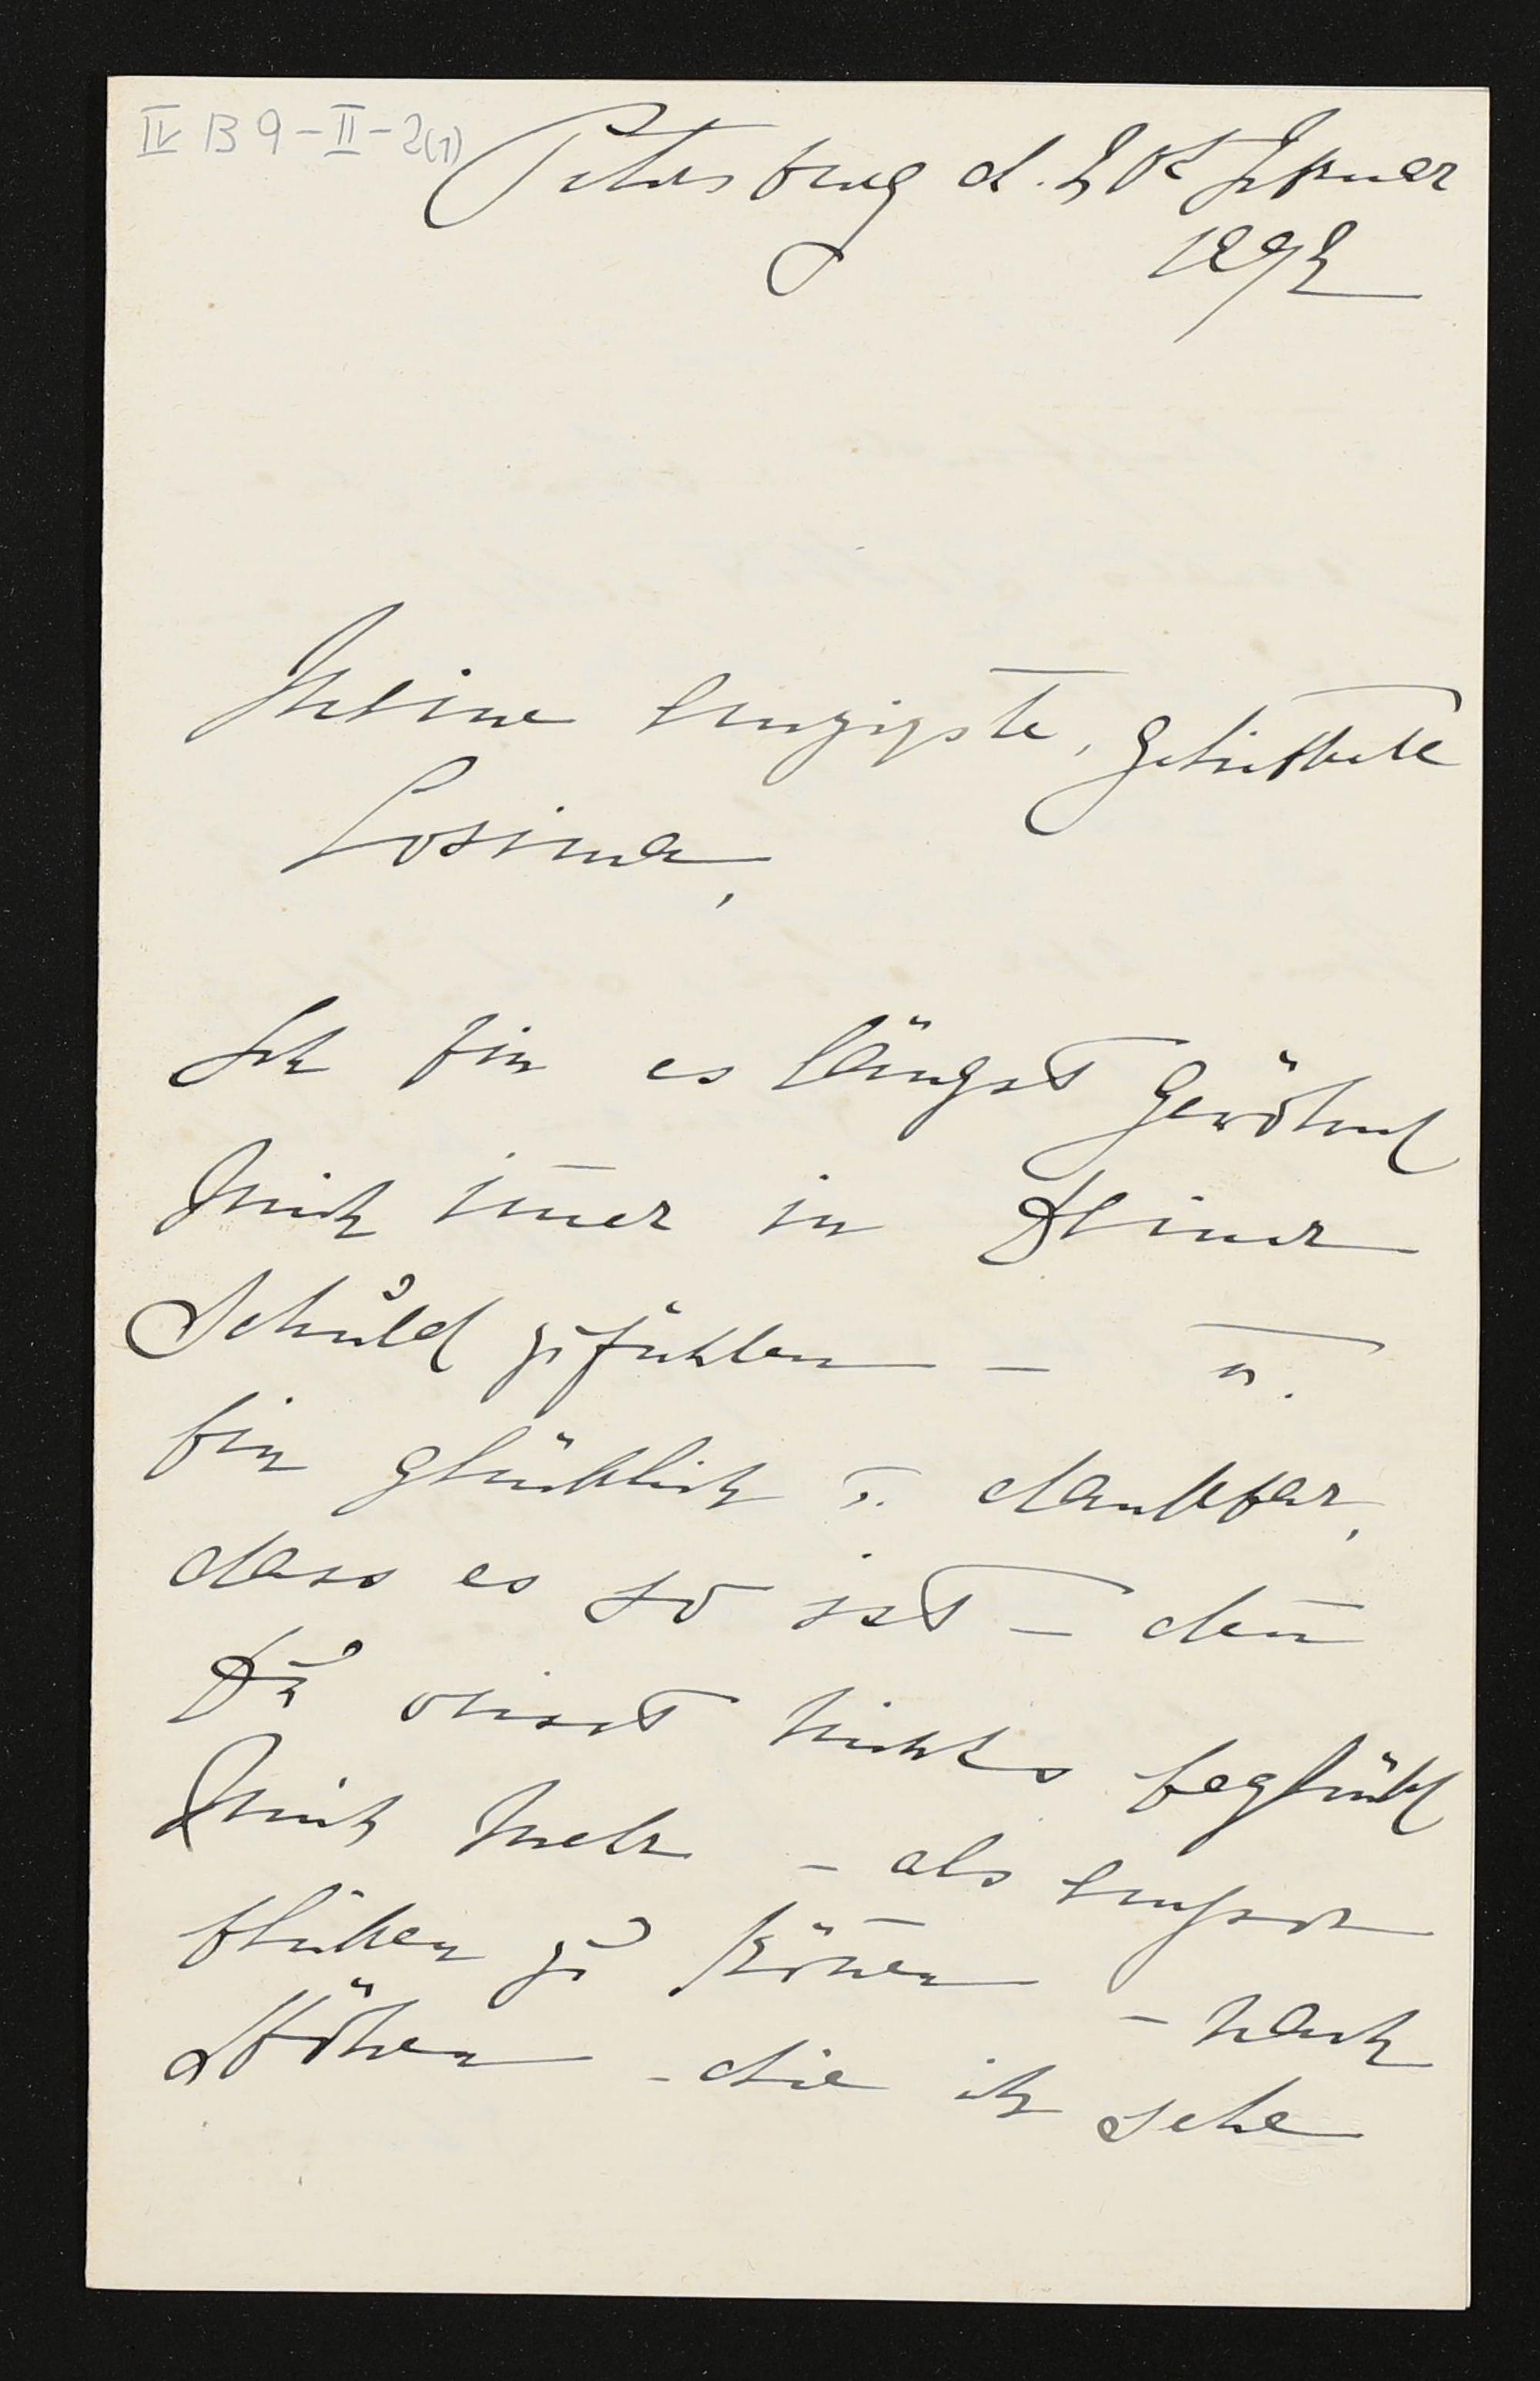 IV B 9-II-2(1)
Petersburg d. 2t Januar
1892
Meine einzigste, geliebteste
Cosima,
Ich bin es längst gewöhnt
mich im̅er in Deiner
Schuld zu fühlen – u.
bin glücklich u. dankbar,
dass es so ist – den̅
Du weisst nichts beglückt
mich mehr – als empor
blicken zu kön̅en – nach
Höhen – die ich sehe